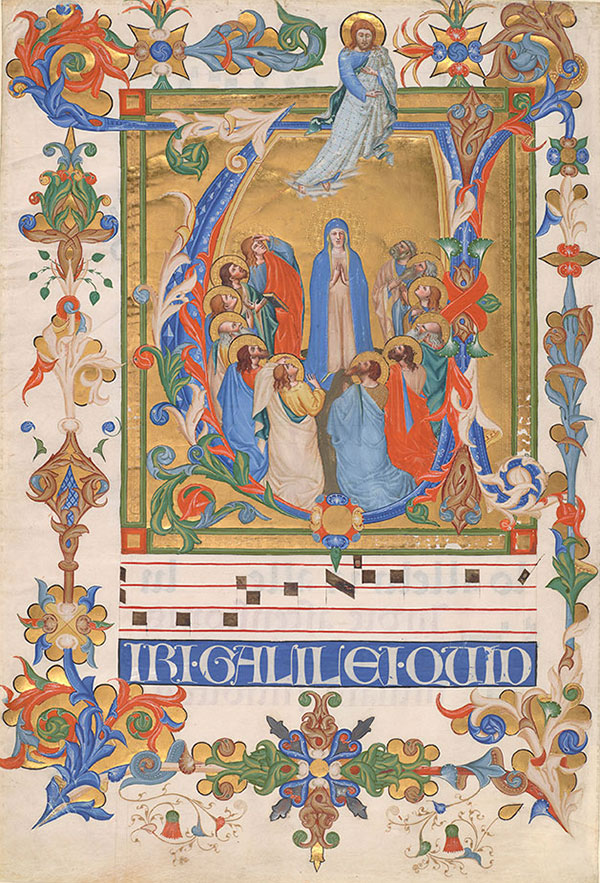 IRI·GALILEI·QUID